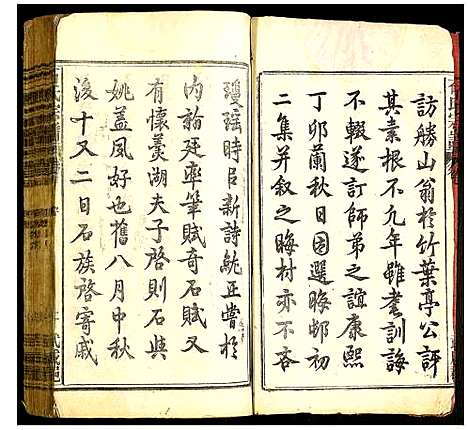 訪勝山翁於竹葉亭公評
其素根不九年雖耄訓誨
不輟遂訂師弟之誼康熙
丁卯蘭秋日因選晦邨初
二集并叙之晦村亦不吝
瓊瑶時呂新詩統正嘗於
内翰廷率筆賦奇石賦又
有懷羹湖夫子啓則石與
姚蓋夙好也舊八月中秋
後十又二日石族啓寄戚